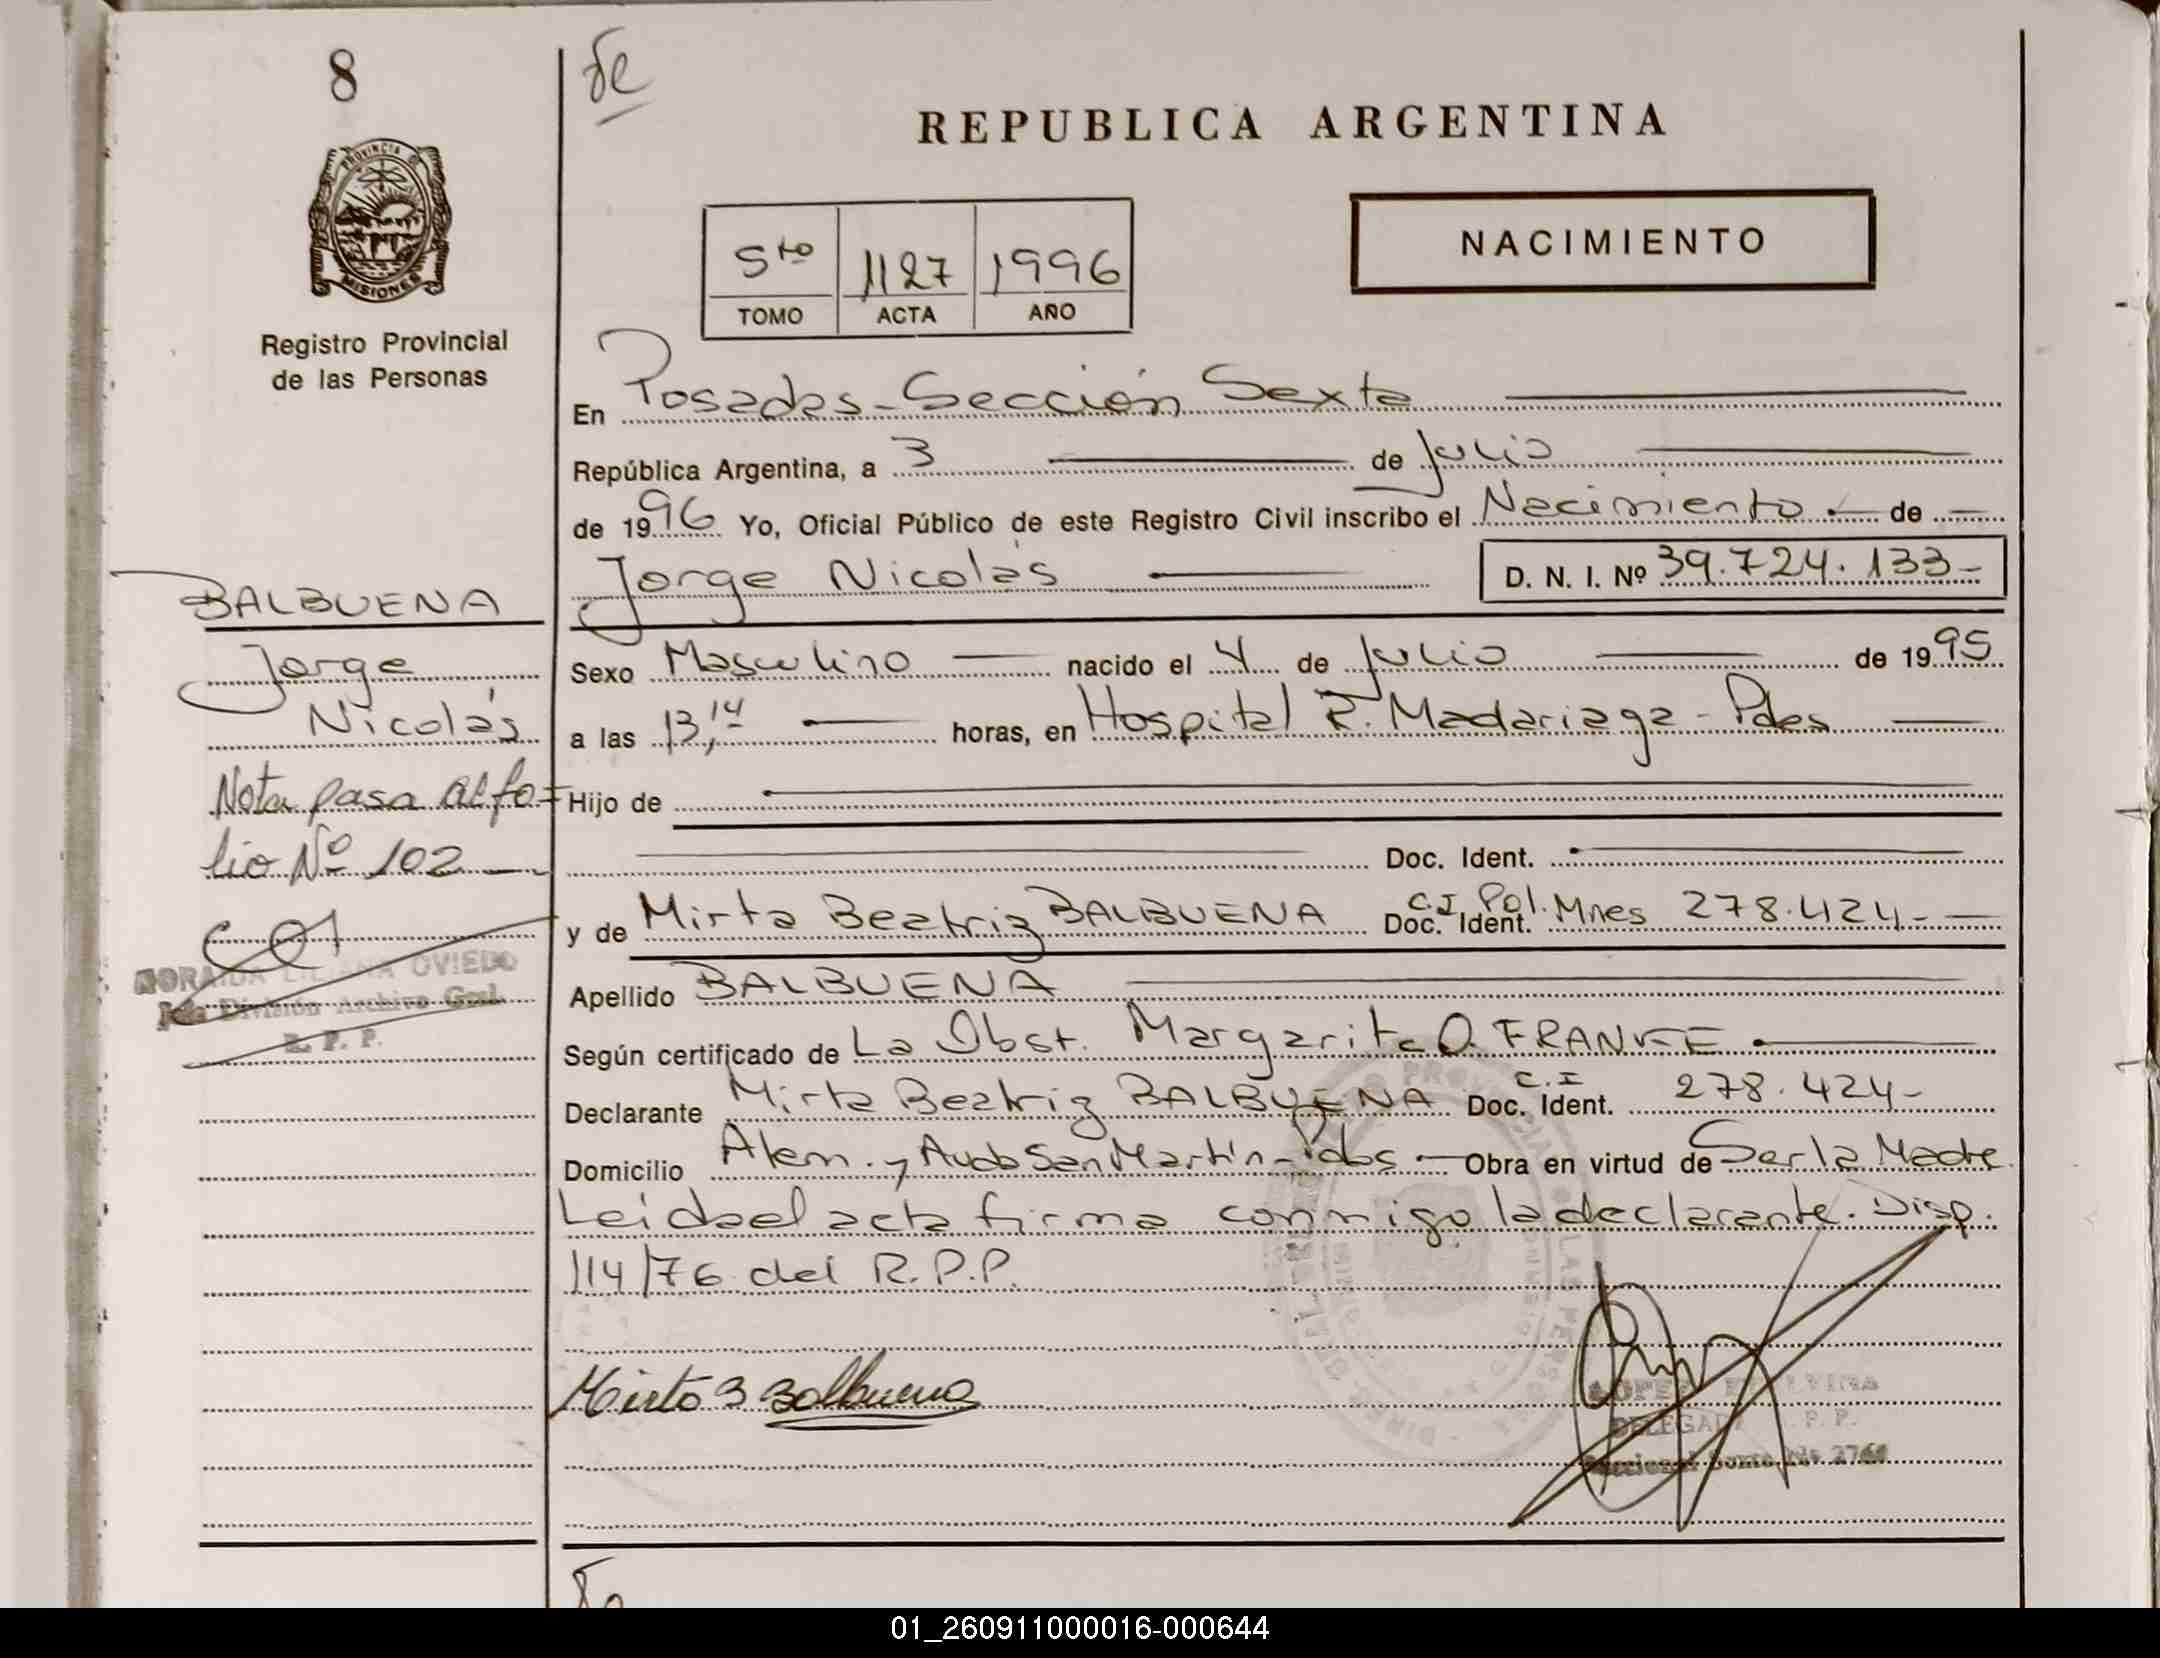 8
REPUBLICA ARGENTINA
PROVINCIA DE
MISIONES
Registro Provincial
de las Personas
5to 1127 1996
TOMO ACTA AÑO
NACIMIENTO
En Posadas - Sección Sexta
República Argentina, a 3 de Julio
de 1996 Yo, Oficial Público de este Registro Civil inscribo el Nacimiento de
Jorge Nicolás D. N. I. Nº 39.724.133-
BALBUENA
Jorge
Nicolás
Nota pasa al fo-
lio Nº 102
LILIANA OVIEDO
Jefa División Archivo Gral.
R. P. P.
Sexo Masculino nacido el 4 de Julio de 1995
a las 13,14 horas, en Hospital R. Madariaga - Pdas
Hijo de
Doc. Ident.
y de Mirta Beatriz BALBUENA C.I. Pol. Doc. Ident. Mnes 278.424-
Apellido BALBUENA
Según certificado de La Obst. Margarita O. FRANKE
Declarante Mirta Beatriz BALBUENA C.I Doc. Ident. 278.424-
Domicilio Alem. y Avda San Martín - Pdas - Obra en virtud de Ser la Madre
Leída el acta firma conmigo la declarante. Disp.
114/76 del R.P.P.
Mirta B Balbuena
01_260911000016-000644